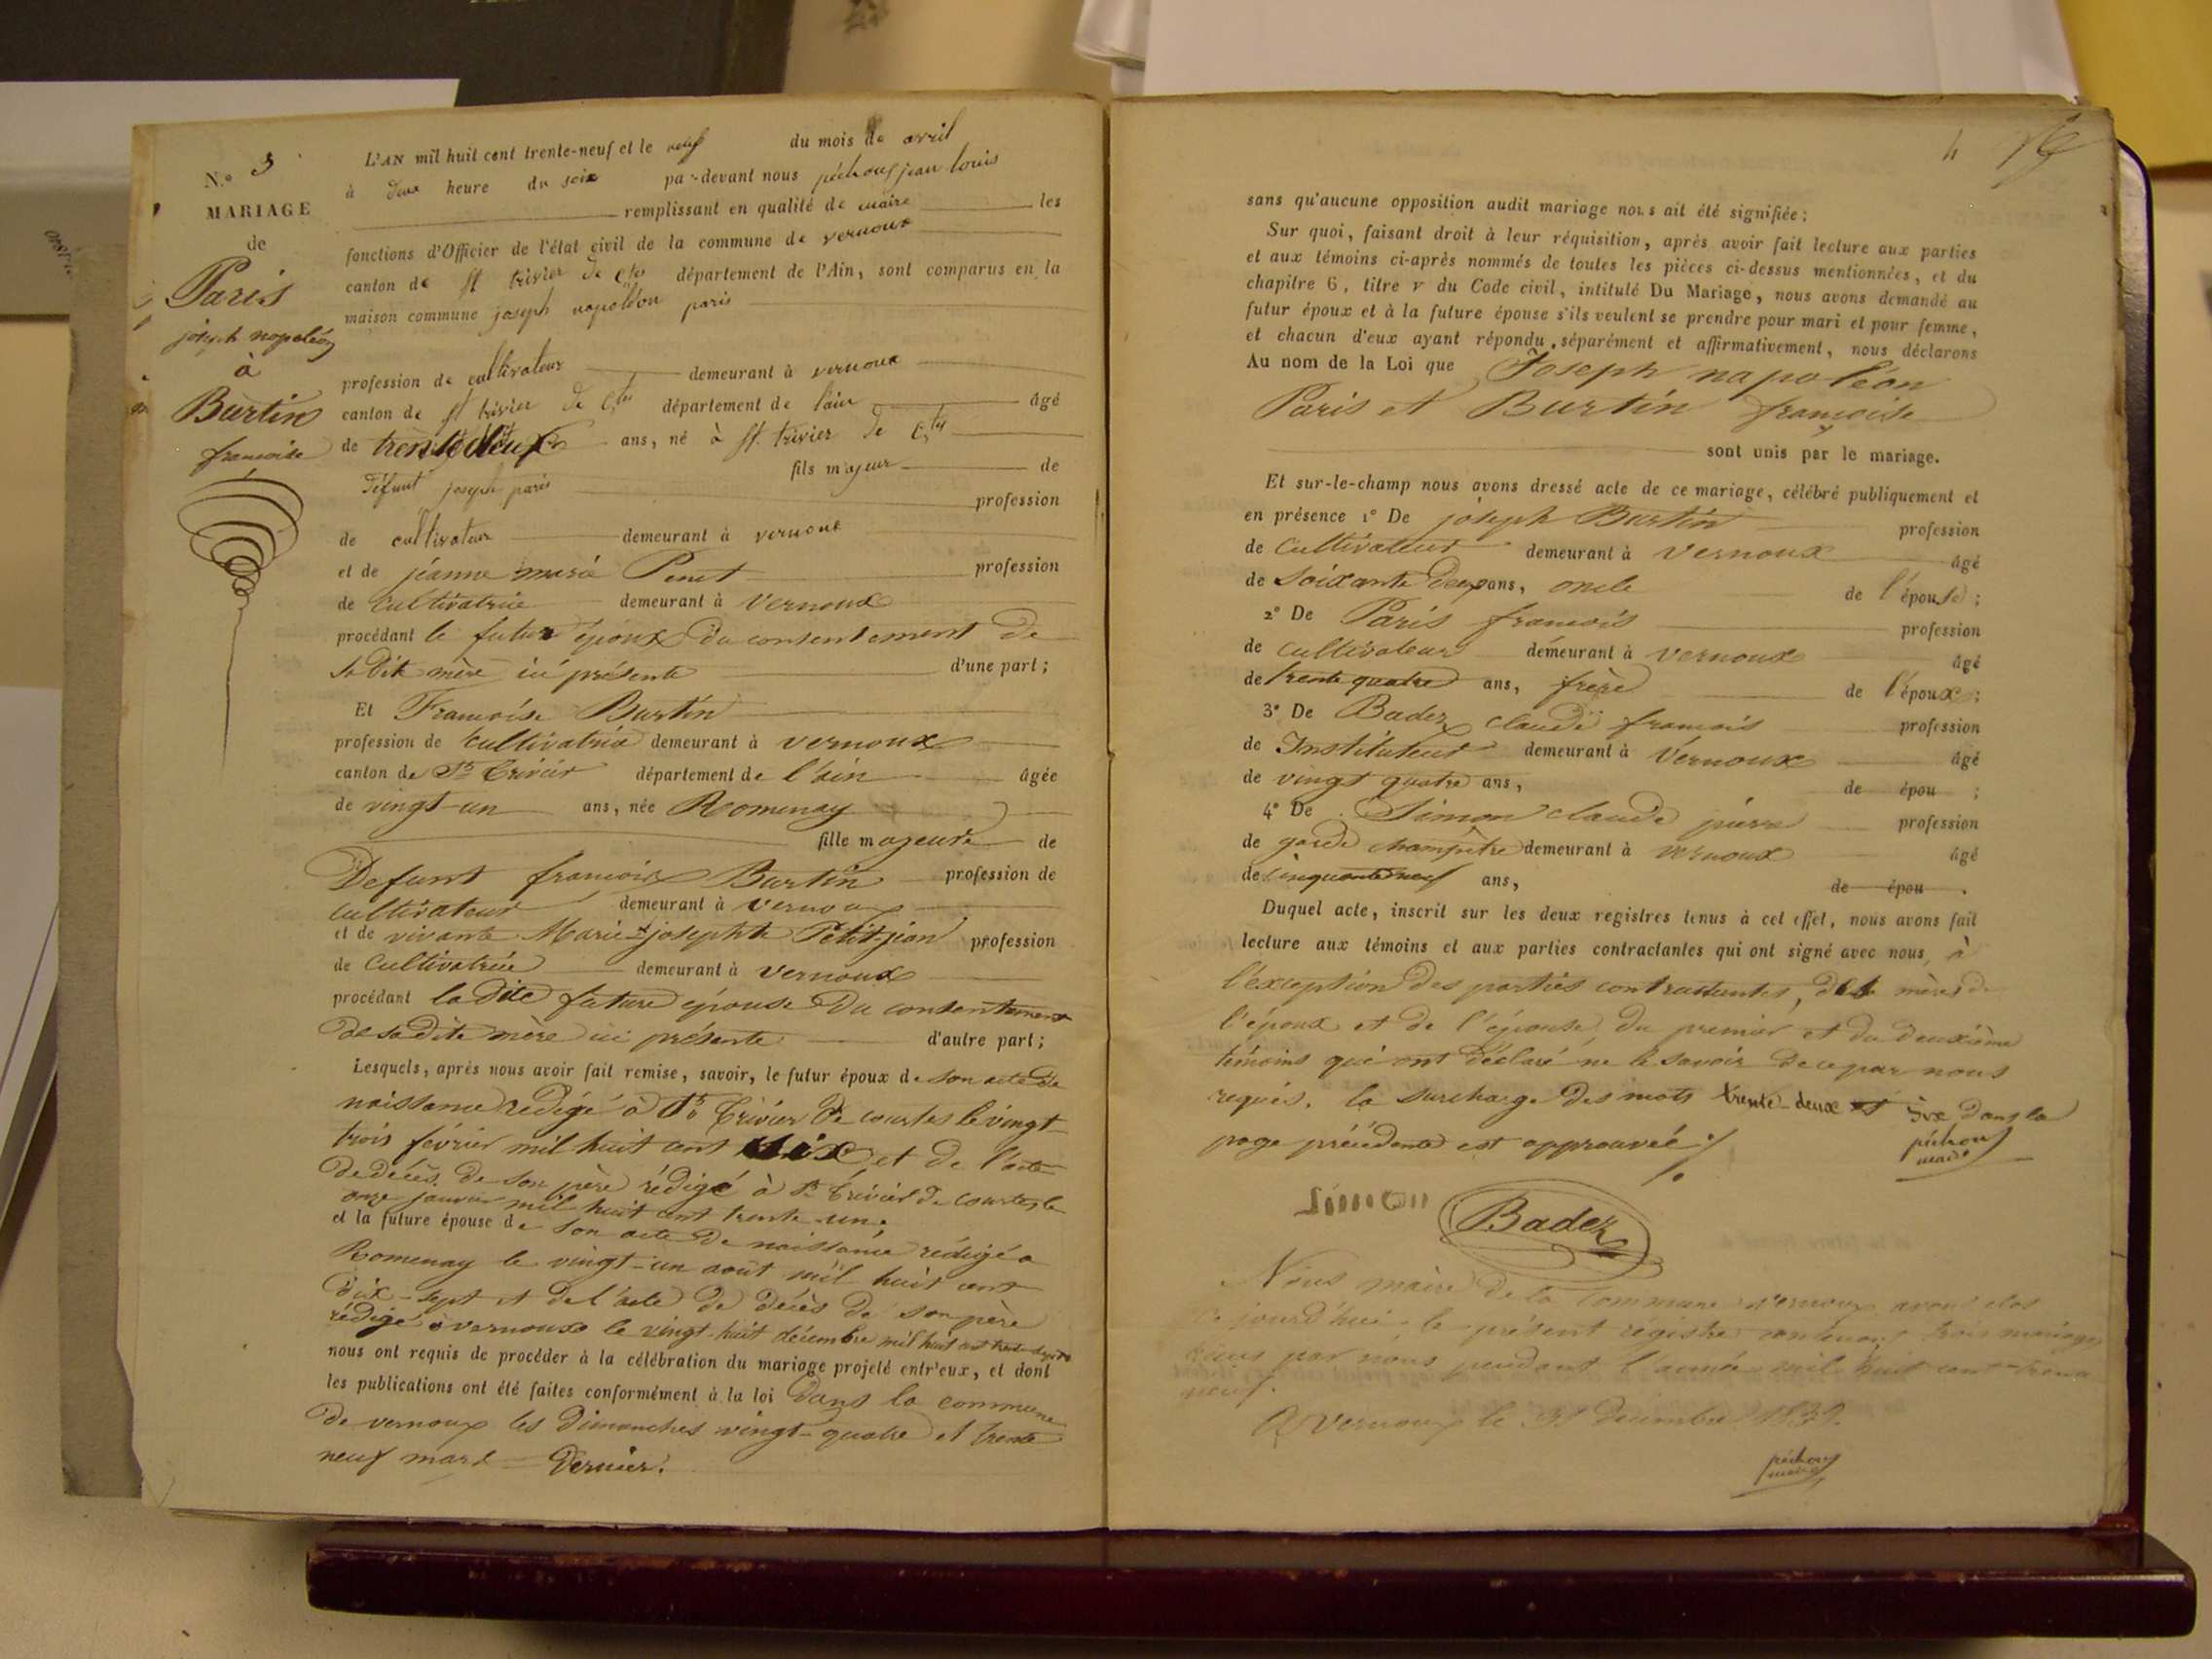 N.º 3
MARIAGE
de
Paris
joseph napoléon
à
Burtin
francoise
L'AN mil huit cent trente-neuf et le neuf du mois de avril
à deux heure du soir par-devant nous péchoux jean louis
remplissant en qualité de maire les
fonctions d'Officier de l'état civil de la commune de vernoux
canton de St trivier de Ctes département de l'Ain, sont comparus en la
maison commune joseph napoléon paris
profession de cultivateur demeurant à vernoux
canton de St trivier de Ctes département de l'ain âgé
de trente deux ans, né à St. trivier de Ctes
fils majeur de
défunt joseph paris profession
de cultivateur demeurant à vernoux
et de jéanne marie Penet profession
de cultivatrice demeurant à vernoux
procédant le futur époux du consentement de
sa dite mère ici présente d'une part;
Et Francoise Burtin
profession de cultivatrice demeurant à vernoux
canton de St Trivier département de l'ain âgée
de vingt-un ans, née Romenay
fille majeure de
Defunt francois Burtin profession de
cultivateur demeurant à vernoux
et de vivante Marie josephte Petit-jean profession
de Cultivatrice demeurant à vernoux
procédant la dite future épouse du consentement
de sa dite mère ici présente d'autre part;
Lesquels, après nous avoir fait remise, savoir, le futur époux de son acte de
naissance redigé à St Trivier de courtes le vingt
trois février mil huit cent six et de l'acte
de décès de son père rédigé à St Trivier de Courtes le
onze janvier mil huit cent trente-un.
et la future épouse de son acte de naissance rédigé a
Romenay le vingt-un août mil huit cent
dix-sept et de l'acte de décès de son père
rédigé à vernoux le vingt-huit décembre mil huit cent trente-
nous ont requis de procéder à la célébration du mariage projeté entr'eux, et dont
les publications ont été faites conformément à la loi dans la commune
de vernoux les dimanches vingt-quatre et trente
neuf mars dernier.
4
sans qu'aucune opposition audit mariage nous ait été signifiée;
Sur quoi, faisant droit à leur réquisition, après avoir fait lecture aux parties
et aux témoins ci-après nommés de toutes les pièces ci-dessus mentionnées, et du
chapitre 6, titre v du Code civil, intitulé Du Mariage, nous avons demandé au
futur époux et à la future épouse s'ils veulent se prendre pour mari et pour femme,
et chacun d'eux ayant répondu séparément et affirmativement, nous déclarons
Au nom de la Loi que Joseph napoléon
Paris et Burtin francoise
sont unis par le mariage.
Et sur-le-champ nous avons dressé acte de ce mariage, célébré publiquement et
en présence 1º De joseph Burtin profession
de Cultivateur demeurant à vernoux âgé
de soixante deux ans, oncle de l'épouse;
2º De Paris francois profession
de cultivateur demeurant à vernoux âgé
de trente quatre ans, frère de l'époux;
3º De Badez claude francois profession
de Instituteur demeurant à Vernoux âgé
de vingt quatre ans, de épou ;
4º De Simon claude pierre profession
de garde champêtre demeurant à vernoux âgé
de cinquante neuf ans, de épou .
Duquel acte, inscrit sur les deux registres tenus à cet effet, nous avons fait
lecture aux témoins et aux parties contractantes qui ont signé avec nous, à
l'exception des parties contractantes, des mères de
l'époux et de l'épouse, du premier et du deuxième
témoins qui ont déclaré ne le savoir de ce par nous
requis. la surcharge des mots trente-deux et six dans la
page précédente est approuvée
péchoux
maire
Simon Badez
Nous maire de la commune vernoux avons clos
ce jourd'hui le présent régistre contenant trois mariages
par nous pendant l'année mil huit cent trente
neuf.
A vernoux le 31 décembre 1839.
péchoux
maire